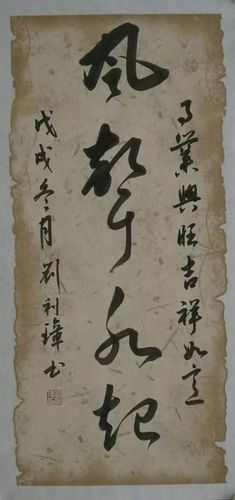 事業興旺吉祥如意
風聲水起
戊戌冬月刘利璋书